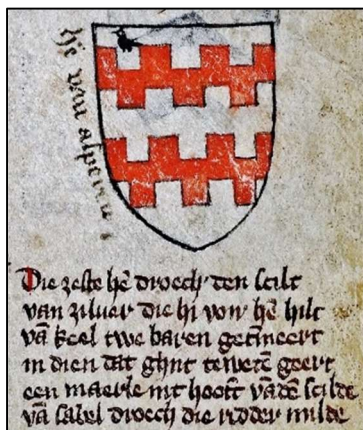 h̄ van alperen
Die zeste hē droech den scilt
van zilver die hi voir hē hilt
vā keel twe baren getinneert
in dien dat ghȳt tewerē geert
een maerle int hooft vādē scilde
vā sabel droech die ridder milde